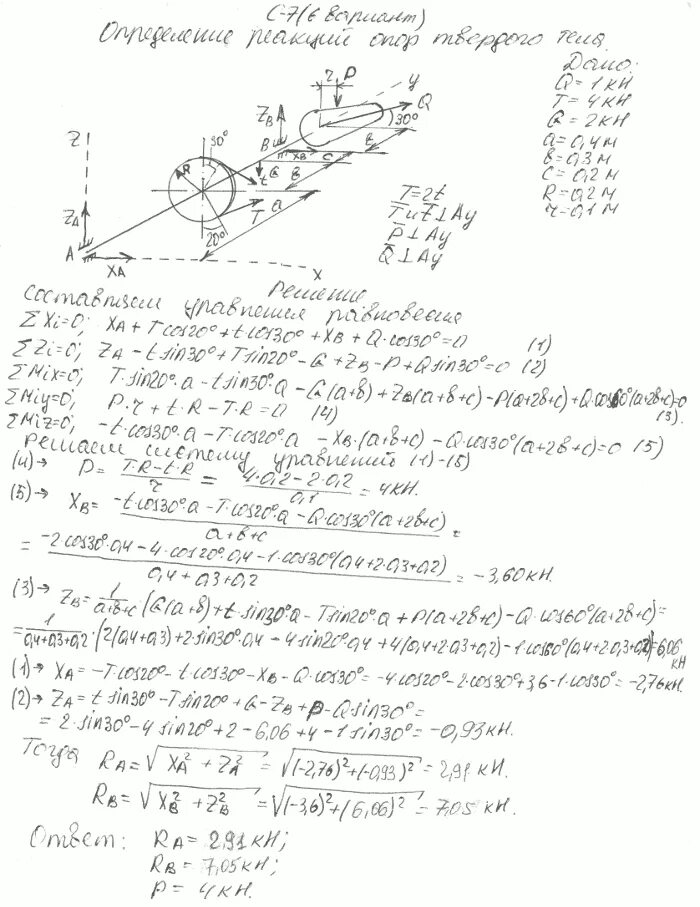 С-7 (6 вариант)
Определение реакций опор твердого тела.
Дано:
Q = 1 кН
T = 4 кН
G = 2 кН
a = 0,4 м
b = 0,3 м
c = 0,2 м
R = 0,2 м
r = 0,1 м
T = 2t
T и t ⊥ Ay
P ⊥ Ay
Q ⊥ Ay
Z
Z_A
A
X_A
X
R
30°
20°
T
t
a
G
b
Z_B
B
X_B
c
b
r
P
y
Q
30°
Решение
Составляем уравнения равновесия
ΣXi=0; X_A + T cos20° + t·cos30° + X_B + Q·cos30° = 0 (1)
ΣZi=0; Z_A - t·sin30° + T sin20° - G + Z_B - P + Q sin30° = 0 (2)
ΣMix=0; T·sin20°·a - t sin30°·a - G(a+b) + Z_B(a+b+c) - P(a+2b+c) + Q·cos60°(a+2b+c)=0 (3).
ΣMiy=0; P·r + t·R - T·R = 0 (4)
ΣMiz=0; -t·cos30°·a - T·cos20°·a - X_B·(a+b+c) - Q·cos30°(a+2b+c) = 0 (5)
Решаем систему уравнений (1)-(5)
(4)→ P = (T·R - t·R)/r = (4·0,2 - 2·0,2)/0,1 = 4 кН.
(5)→ X_B = (-t·cos30°·a - T·cos20°·a - Q·cos30°(a+2b+c))/(a+b+c) =
= (-2·cos30°·0,4 - 4·cos20°·0,4 - 1·cos30°(0,4+2·0,3+0,2))/(0,4+0,3+0,2) = -3,60 кН.
(3)→ Z_B = 1/(a+b+c) (G(a+b) + t·sin30°a - T sin20°·a + P(a+2b+c) - Q·cos60°(a+2b+c) =
= 1/(0,4+0,3+0,2)·(2(0,4+0,3)+2·sin30°·0,4 - 4 sin20°·0,4 + 4(0,4+2·0,3+0,2) - 1·cos60°(0,4+2·0,3+0,2) = 6,06 кН
(1)→ X_A = -T·cos20° - t·cos30° - X_B - Q·cos30° = -4·cos20° - 2·cos30° + 3,6 - 1·cos30° = -2,76 кН.
(2)→ Z_A = t·sin30° - T sin20° + G - Z_B + P - Q sin30° =
= 2·sin30° - 4 sin20° + 2 - 6,06 + 4 - 1 sin30° = -0,93 кН.
Тогда R_A = √(X_A² + Z_A²) = √((-2,76)² + (-0,93)²) = 2,91 кН.
R_B = √(X_B² + Z_B²) = √((-3,6)² + (6,06)²) = 7,05 кН.
Ответ: R_A = 2,91 кН;
R_B = 7,05 кН;
P = 4 кН.